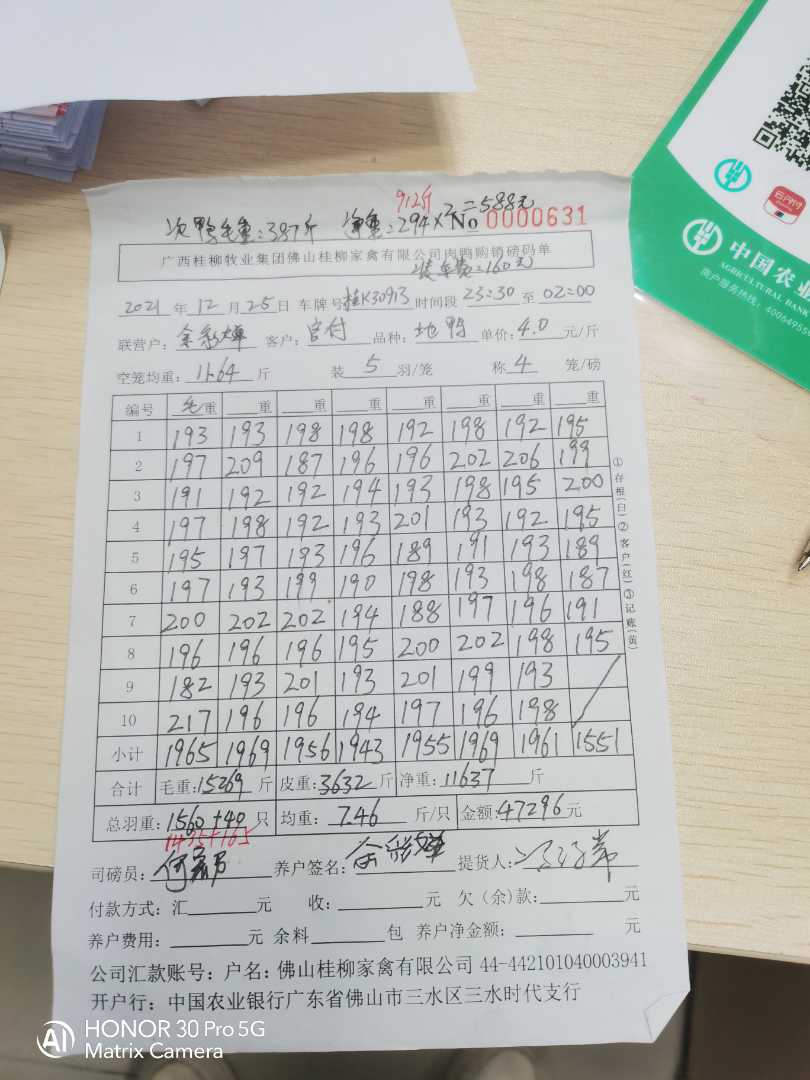 912斤
次鸭毛重:387斤 净重:294×2=588元
No 0000631
广西桂柳牧业集团佛山桂柳家禽有限公司肉鸭购销磅码单
装车费:160元
2021年12月25日 车牌号桂K30913 时间段 23:30 至 02:00
联营户: 客户: 官付 品种: 地鸭 单价: 4.0 元/斤
空笼均重: 11.64 斤 装 5 羽/笼 称 4 笼/磅
编号 毛重 重 重 重 重 重 重 重
1 193 193 198 198 192 198 192 195
2 197 209 187 196 196 202 206 199
3 191 192 192 194 193 198 195 200
4 197 198 192 193 201 193 192 195
5 195 197 193 196 189 191 193 189
6 197 193 199 190 198 193 198 187
7 200 202 202 194 188 197 196 191
8 196 196 196 195 200 202 198 195
9 182 193 201 193 201 199 193
10 217 196 196 194 197 196 198
小计 1965 1969 1956 1943 1955 1969 1961 1551
合计 毛重:15269斤 皮重:3632斤 净重:11637斤
总羽重:1560+40只 均重:7.46斤/只 金额:47296元
1435+165
司磅员: 养户签名: 提货人:
付款方式:汇 元 收: 元 欠(余)款: 元
养户费用: 元 余料 包 养户净金额: 元
公司汇款账号:户名:佛山桂柳家禽有限公司 44-442101040003941
开户行:中国农业银行广东省佛山市三水区三水时代支行
①存根(白)②客户(红)③记账(黄)
中国农业
AGRICULTURAL BANK
商户服务热线:400649559
HONOR 30 Pro 5G
Matrix Camera